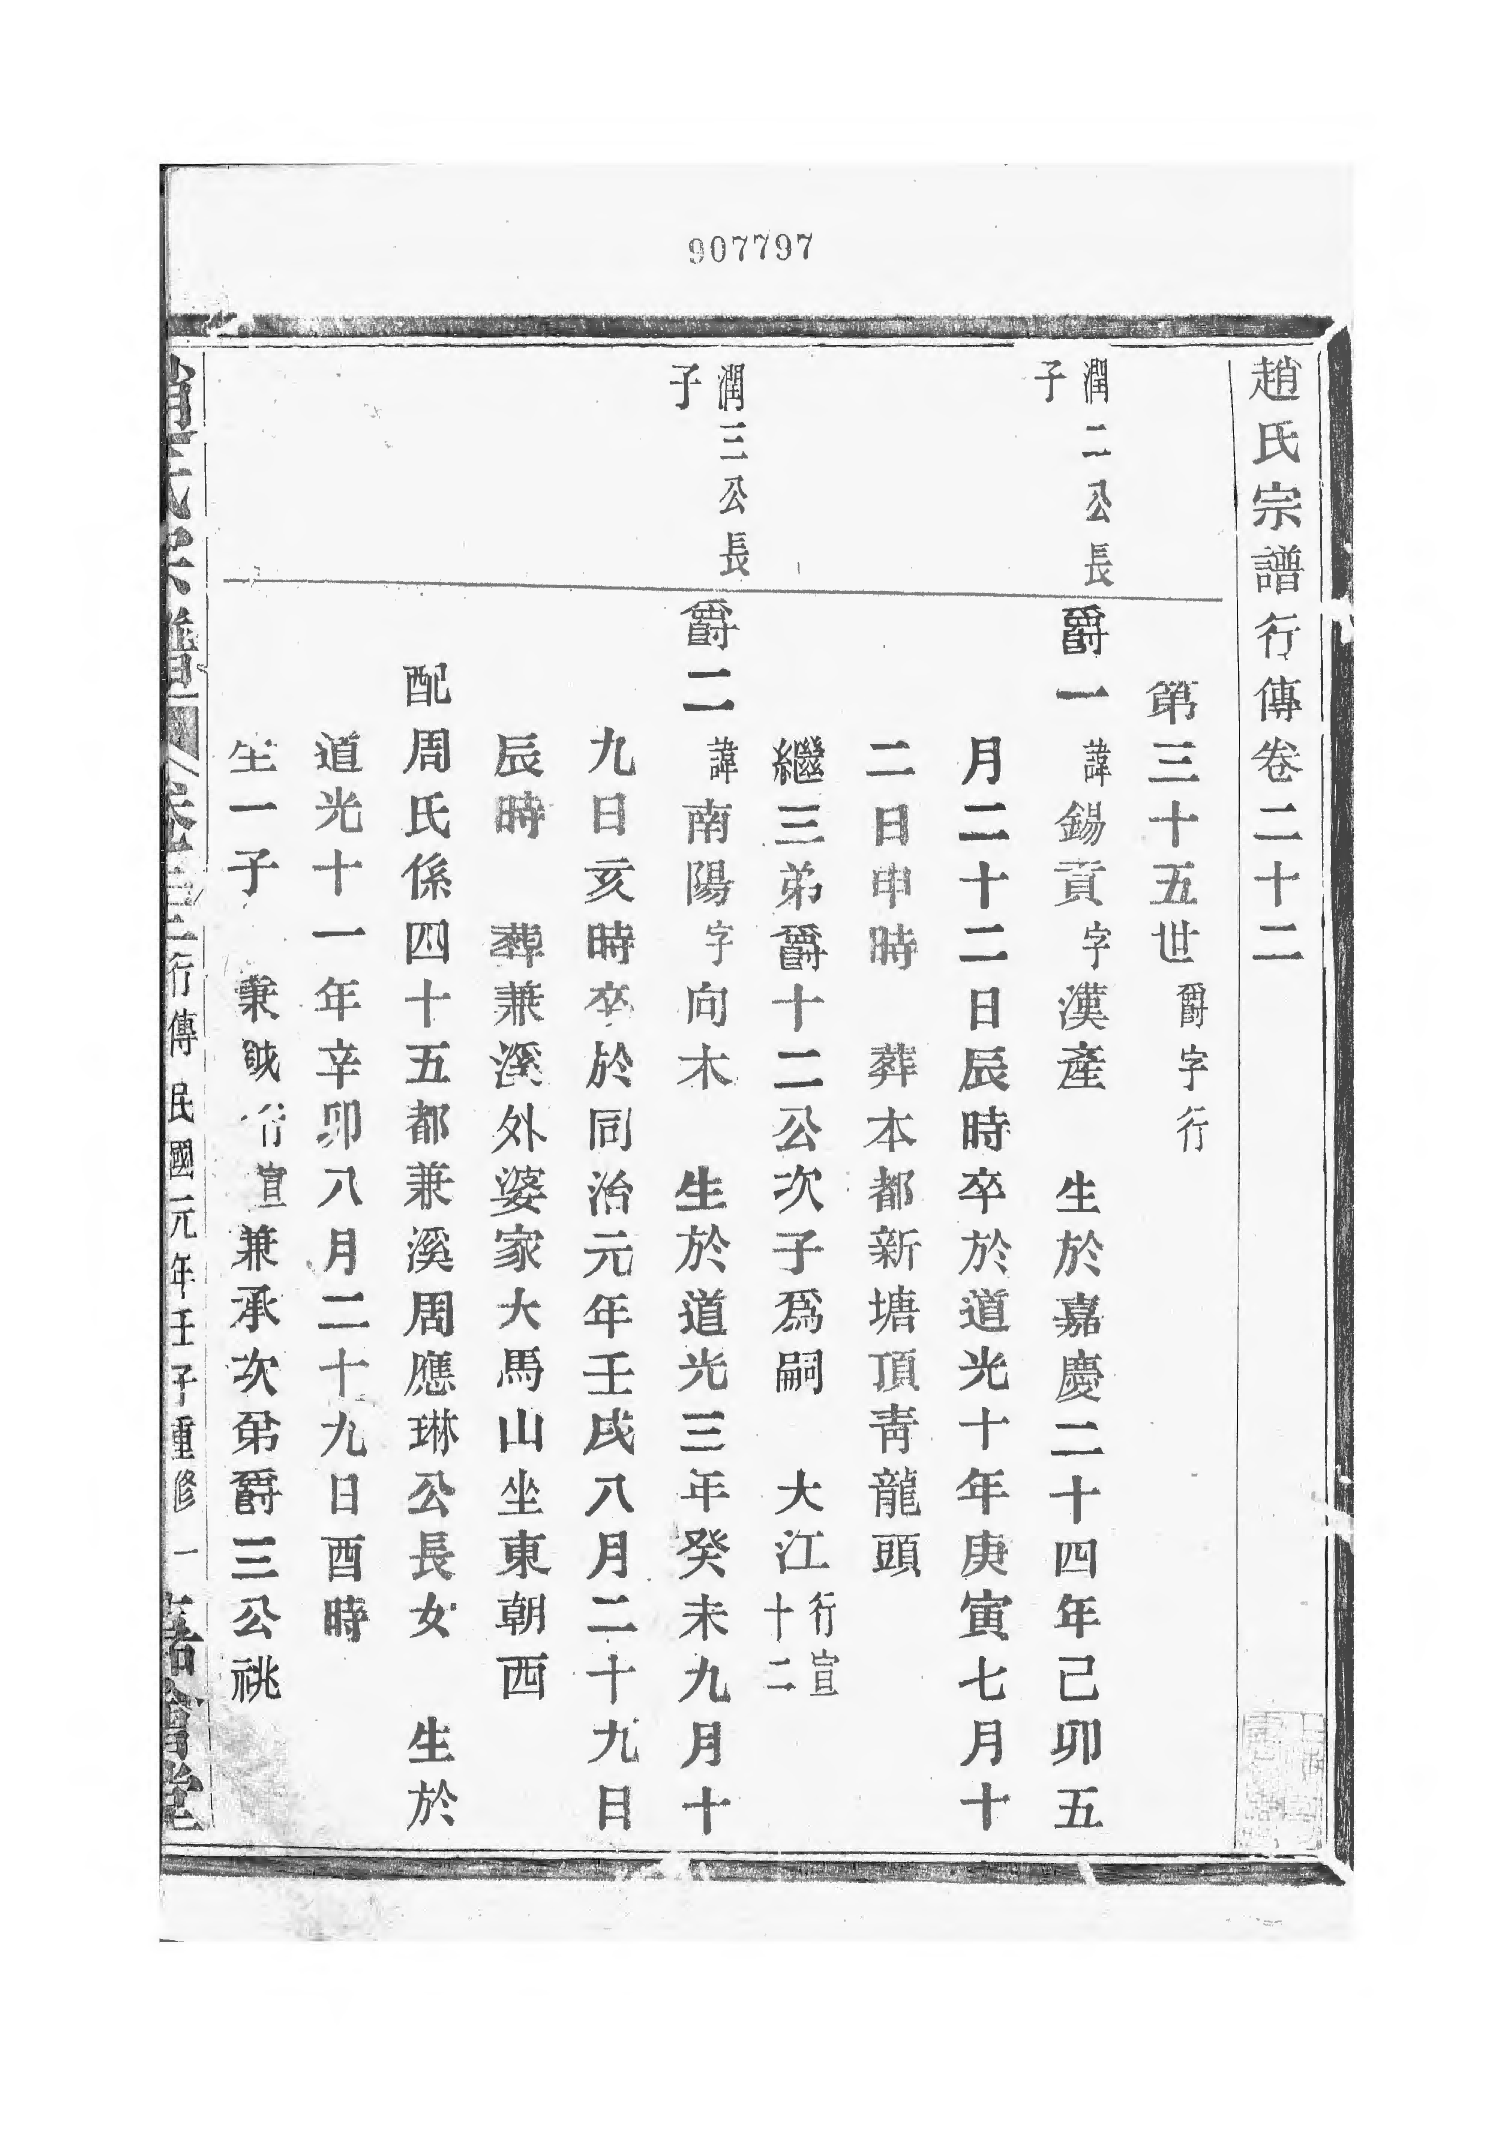 907797
趙氏宗譜行傳卷二十二
第三十五世 爵字行
潤二公長
子
爵一 諱錫貢 字漢產 生於嘉慶二十四年己卯五
月二十二日辰時卒於道光十年庚寅七月十
二日申時 葬本都新塘頂靑龍頭
繼三弟爵十二公次子爲嗣 大江 行宣
十二
潤三公長
子
爵二 諱南陽 字向木 生於道光三年癸未九月十
九日亥時卒於同治元年壬戌八月二十九日
辰時 葬兼溪外婆家大馬山坐東朝西
配周氏係四十五都兼溪周應琳公長女 生於
道光十一年辛卯八月二十九日酉時
生一子 秉 行宣 兼承次弟爵三公祧
趙氏宗譜 卷二十二 行傳 民國元年壬子重修 一 會堂